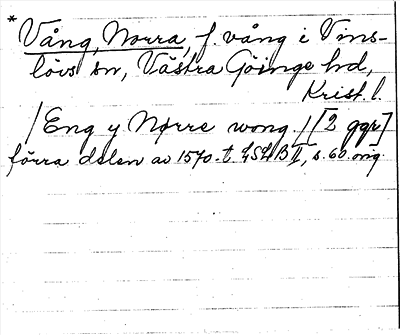 * Vång, Norra, f. vång i Vins-
lövs sn, Västra Göinge hd,
Krist. l.
/Eng y Nørre wong./ [2 ggr]
förra delen av 1570-t. LSHB II, s. 60 orig.